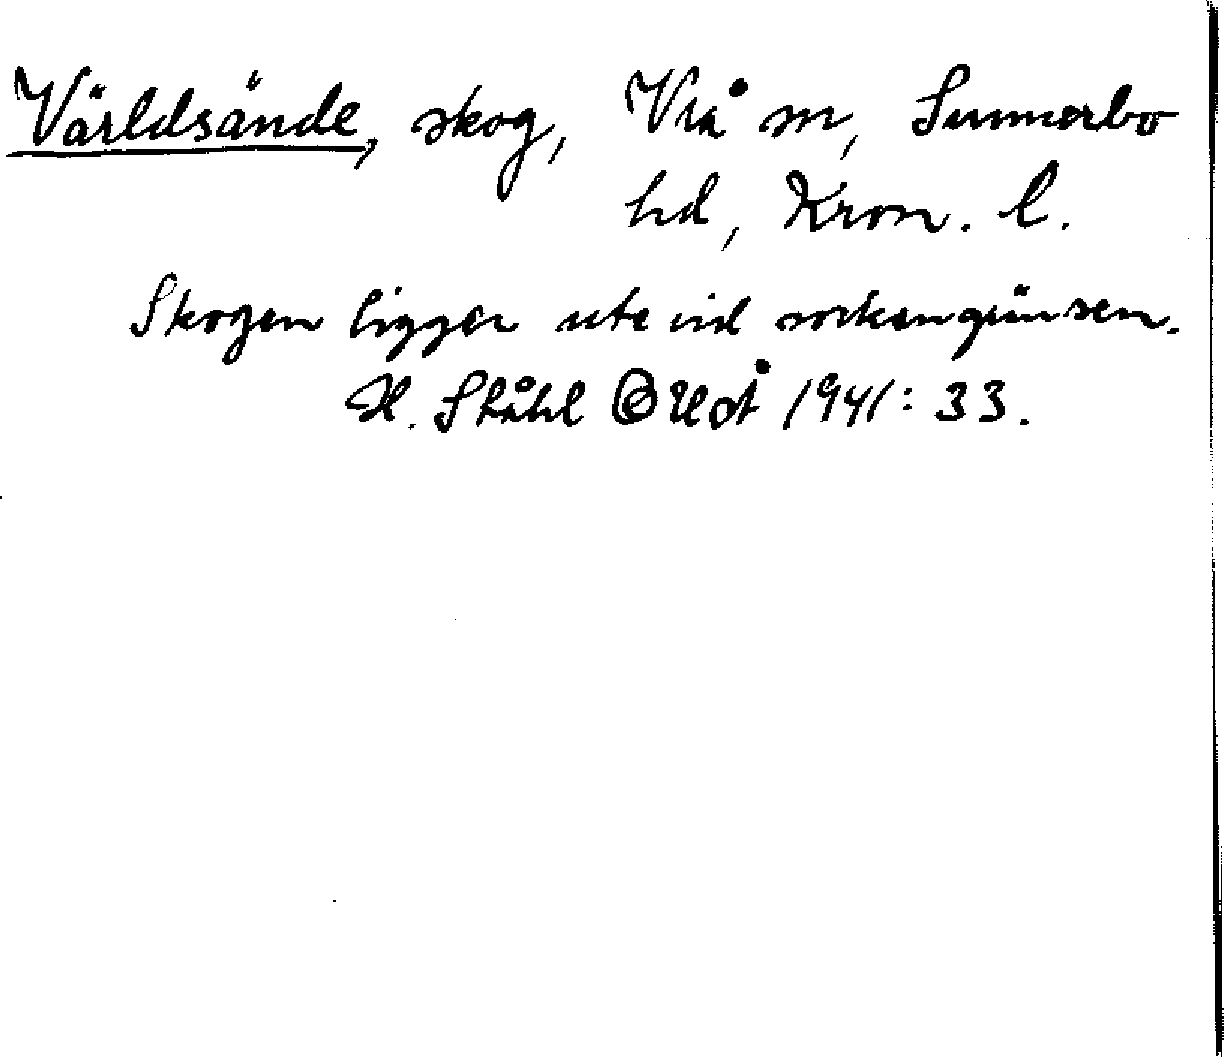 Världsände, skog, Vrå sn, Sunnerbo
hd, Kron. l.
Skogen ligger ute vid sockengränsen.
H. Ståhl OUÅ 1941: 33.